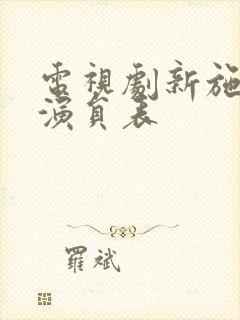 電視劇新施
演員表
羅斌